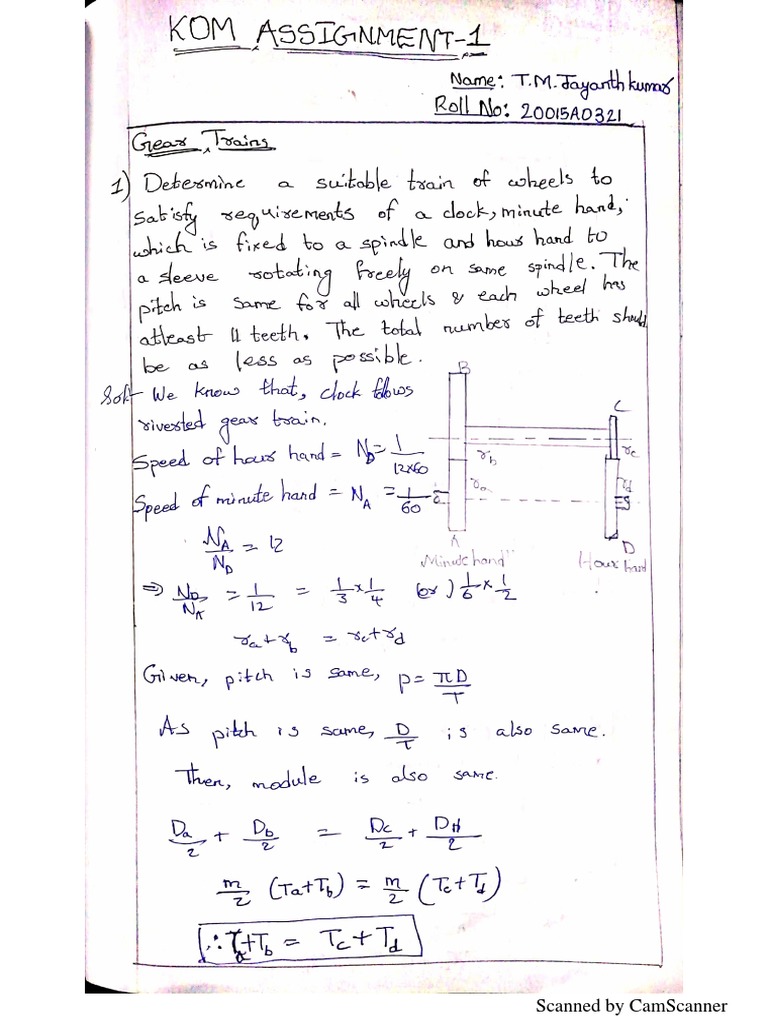 KOM ASSIGNMENT-1
Name: T.M. Jayanth kumar
Roll No: 20015A0321
Gear Trains
1) Determine a suitable train of wheels to
satisfy requirements of a clock, minute hand,
which is fixed to a spindle and hour hand to
a sleeve rotating freely on same spindle. The
pitch is same for all wheels & each wheel has
atleast 11 teeth. The total number of teeth should
be as less as possible.
Sol:- We know that, clock follows
riverted gear train.
Speed of hour hand = N_D = 1/(12×60)
Speed of minute hand = N_A = 1/60
N_A/N_D = 12
⇒ N_D/N_A = 1/12 = 1/3 × 1/4 (or) 1/6 × 1/2
r_a + r_b = r_c + r_d
B
C
r_b
r_c
r_a
r_d
A
D
Minute hand
Hour hand
Given, pitch is same, p = πD/T
As pitch is same, D/T is also same.
Then, module is also same.
Da/2 + Db/2 = Dc/2 + DH/2
m/2 (Ta+Tb) = m/2 (Tc+Td)
∴ Ta+Tb = Tc+Td
Scanned by CamScanner